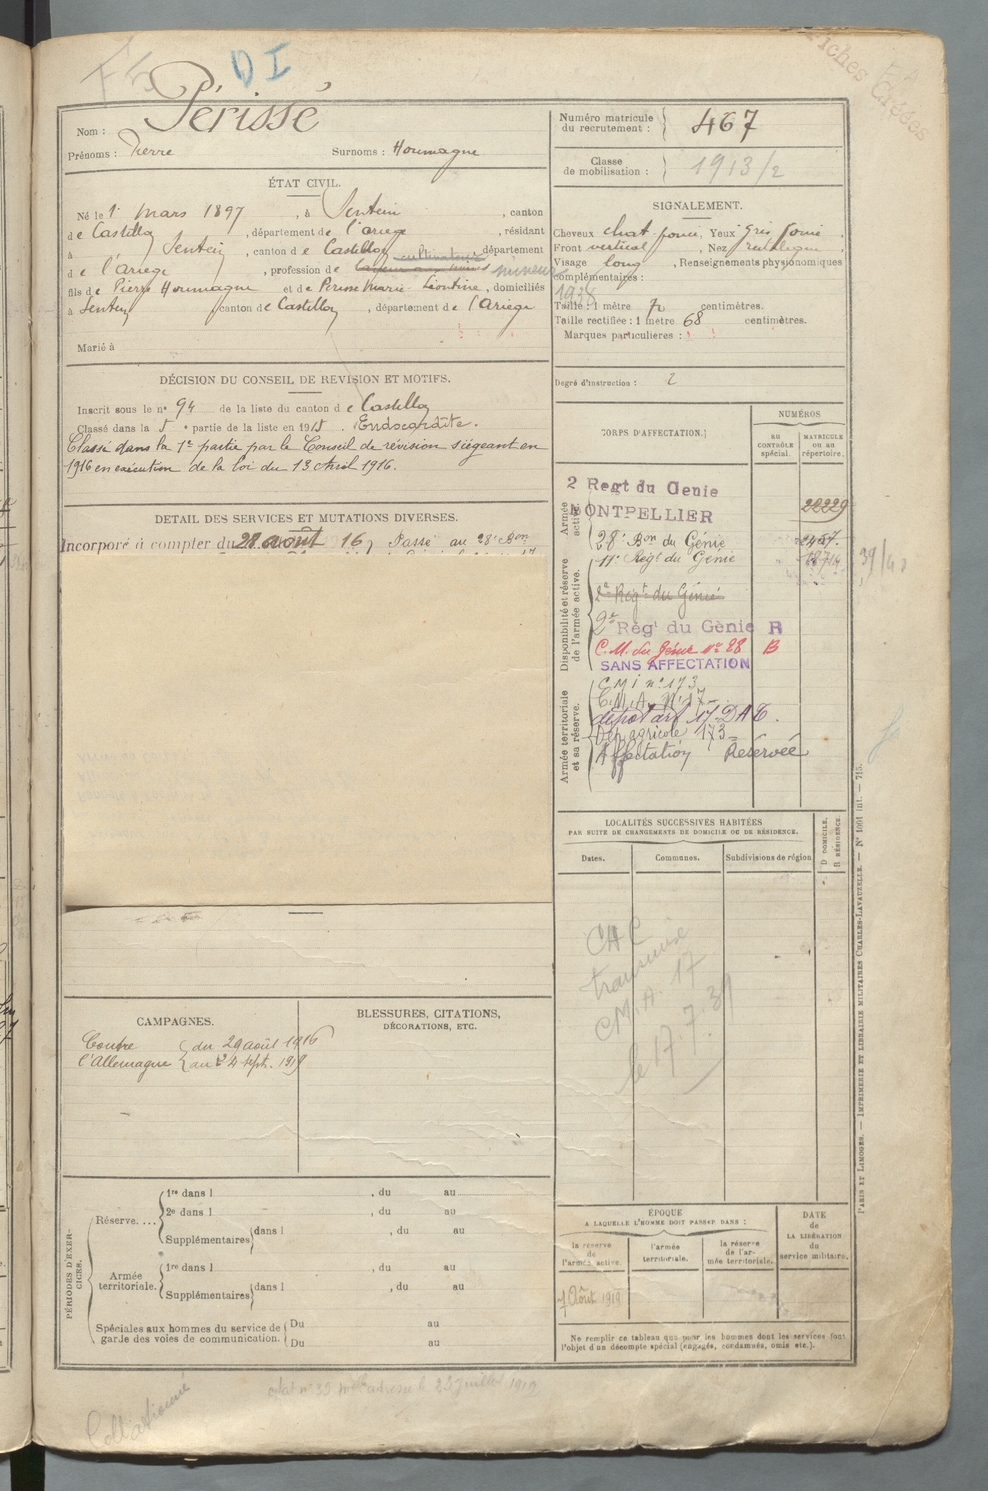 DI
Fiches
Nom : Périssé
Prénoms : Pierre Surnoms : Houmagne
Numéro matricule
du recrutement : 467
Classe
de mobilisation : 1913/2
ÉTAT CIVIL.
Né le 1er mars 1897, à Sentein, canton
de Castillon, département de l'ariege, résidant
à Sentein, canton de Castillon, département
de l'ariege, profession de cultivateur mineur
fils de Pierre Houmagne et de Perisse Marie Léontine, domiciliés
à Sentein, canton de Castillon, département de l'Ariege
Marié à
SIGNALEMENT.
Cheveux chat foncé, Yeux gris foncé
Front vertical, Nez rectiligne
Visage long, Renseignements physionomiques
complémentaires :
1938
Taille : 1 mètre 70 centimètres.
Taille rectifiée : 1 mètre 68 centimètres.
Marques particulières :
Degré d'instruction : 2
DÉCISION DU CONSEIL DE REVISION ET MOTIFS.
Inscrit sous le n° 94 de la liste du canton de Castillon
Classé dans la 5e partie de la liste en 1915. Endocardite.
Classé dans la 1e partie par le Conseil de révision siégeant en
1916 en exécution de la loi du 13 Avril 1916.
DETAIL DES SERVICES ET MUTATIONS DIVERSES.
Incorporé à compter du 28 août 16, Passé au 28e Bon
CORPS D'AFFECTATION.
NUMÉROS
AU
CONTRÔLE
spécial.
MATRICULE
OU AU
répertoire.
Armée
active.
2 Regt du Genie
MONTPELLIER
22229
28e Bon du Génie
2457
11e Régt du Genie
39/40
Disponibilité et réserve
de l'armée active.
2e Régt du Génie
2e Régt du Génie R
C. M. du Génie n° 28 B
SANS AFFECTATION
Armée territoriale
et sa réserve.
C M I n° 173
C.M.A. N° 17
dépot art 17 D A T.
Dep agricole 173
Affectation Réservée
LOCALITÉS SUCCESSIVES HABITÉES
PAR SUITE DE CHANGEMENTS DE DOMICILE OU DE RÉSIDENCE.
Dates.
Communes.
Subdivisions de région
D DOMICILE.
R RÉSIDENCE.
transmise
C.M.A. 17
le 17.7.39
CAMPAGNES.
Contre du 29 août 1916
l'Allemagne au 4 sept. 1919
BLESSURES, CITATIONS,
DÉCORATIONS, ETC.
PÉRIODES D'EXER-
CICES.
Réserve....
1re dans l , du au
2e dans l , du au
Supplémentaires dans l , du au
Armée
territoriale.
1re dans l , du au
Supplémentaires dans l , du au
Spéciales aux hommes du service de
garde des voies de communication.
Du au
Du au
ÉPOQUE
A LAQUELLE L'HOMME DOIT PASSER DANS :
la réserve
de
l'armée active.
l'armée
territoriale.
la réserve
de l'ar-
mée territoriale.
DATE
de
LA LIBÉRATION
du
service militaire.
Août 1919
Ne remplir ce tableau que pour les hommes dont les services font
l'objet d'un décompte spécial (engagés, condamnés, omis etc.).
PARIS ET LIMOGES. — IMPRIMERIE ET LIBRAIRIE MILITAIRES CHARLES-LAVAUZELLE. — N° 1001 int. — 715.
Collationné